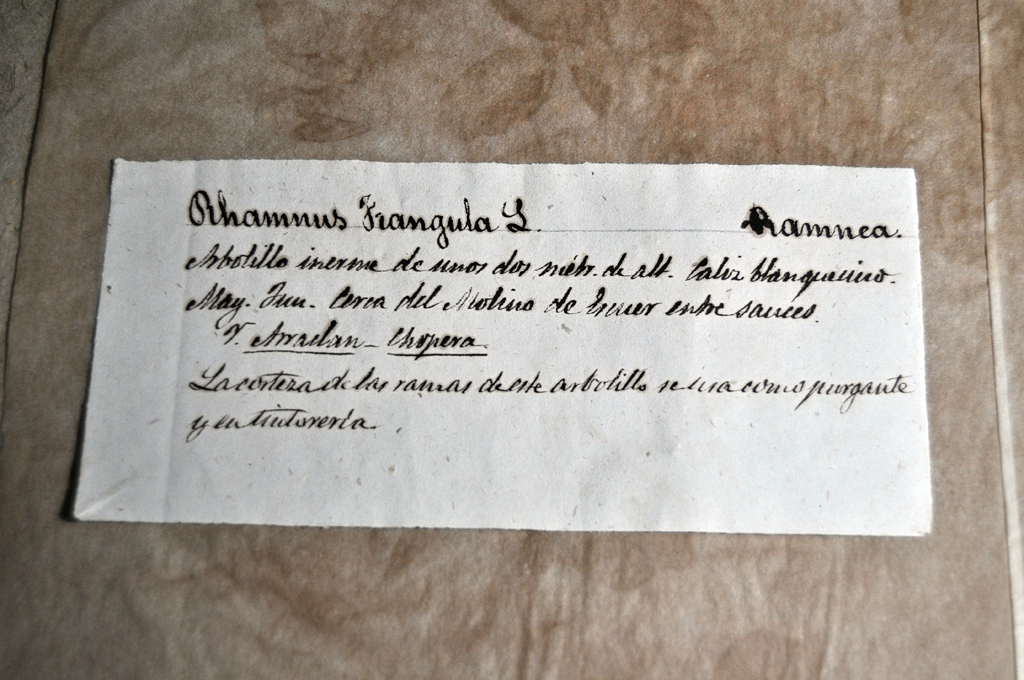 Rhamnus Frangula L. Ramnea.
Arbolillo inerme de unos dos métr. de alt. Caliz blanquecino.
May. Jun. Cerca del Molino de entre sauces.
V. Arraclan - Chopera
La corteza de las ramas de este arbolillo se usa como purgante
y en tintoreria.